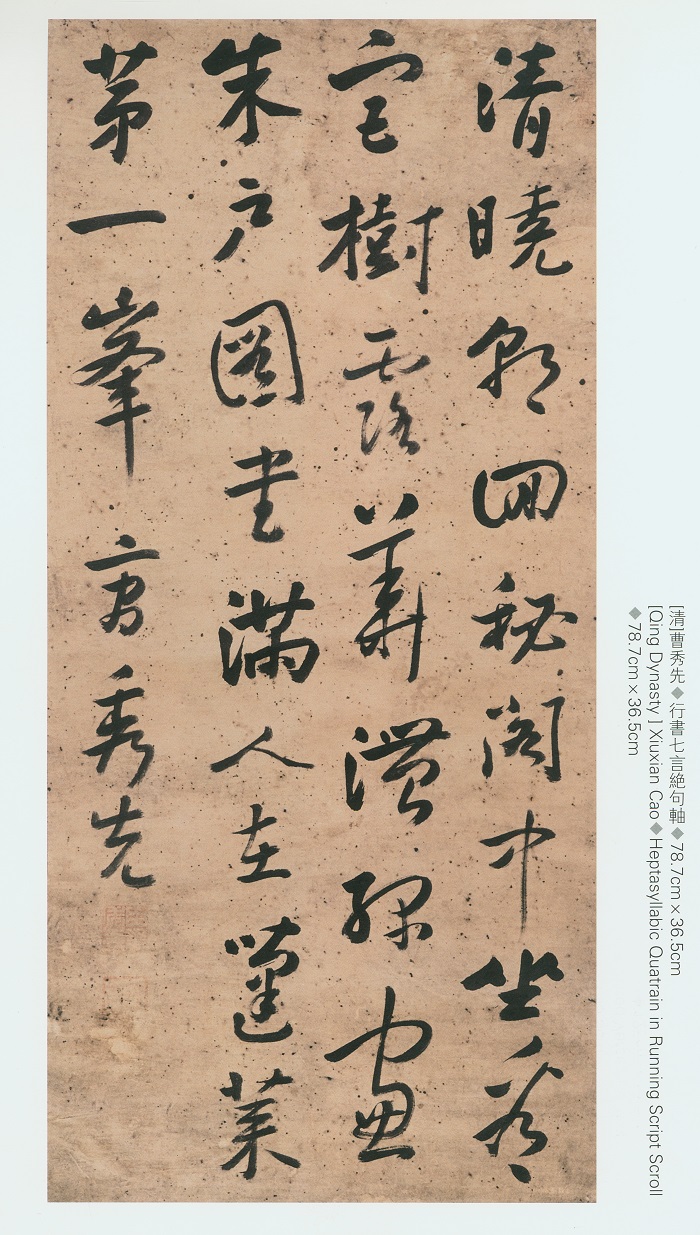 [清]曹秀先◆行書七言絕句軸◆78.7cm×36.5cm
[Qing Dynasty ] Xiuxian Cao◆Heptasyllabic Quatrain in Running Script Scroll
◆78.7cm×36.5cm
清曉朝回秘閣中坐看
宮樹露華濃綠窗
朱戶圖書滿人在蓬萊
第一峯曹秀先